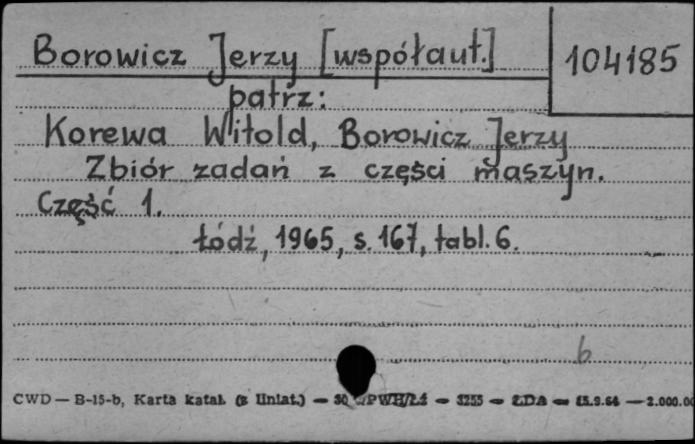 Borowicz Jerzy [współaut.] 104185
patrz:
Korewa Witold, Borowicz Jerzy
Zbiór zadań z części maszyn.
Część 1.
Łódź, 1965, s. 167, tabl. 6.
b
CWD — B-15-b, Karta katal. (z liniat.) — 3255 — ŁDA — 15.9.64 — 2.000.00